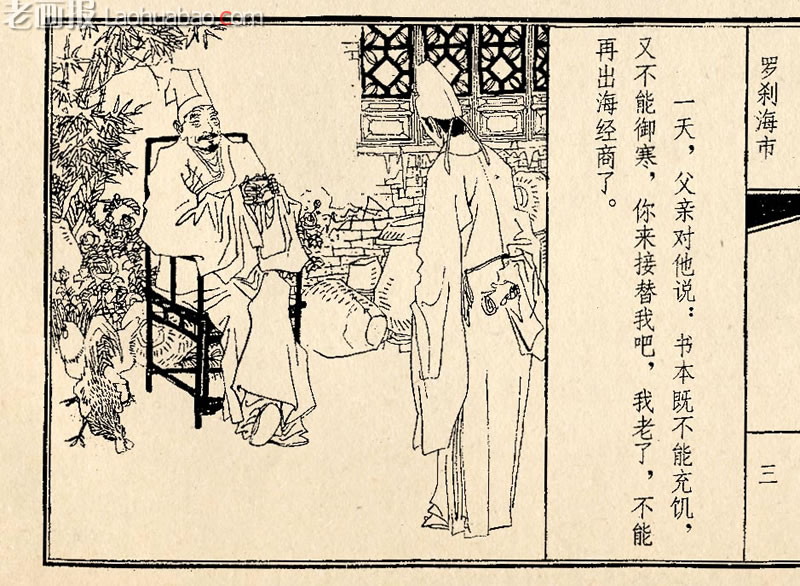 老画报 Laohuabao.com
罗刹海市
一天，父亲对他说：书本既不能充饥，
又不能御寒，你来接替我吧，我老了，不能
再出海经商了。
三